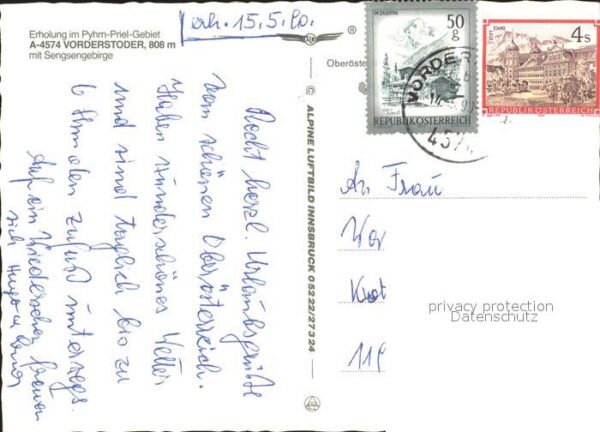 Erholung im Pyhrn-Priel-Gebiet
A-4574 VORDERSTODER, 808 m
mit Sengsengebirge
erh. 15.5.90.
®
Oberöste
50
g
REPUBLIK ÖSTERREICH
STIFT STAMS
4 S
REPUBLIK ÖSTERREICH
VORDER
457
© ALPINE LUFTBILD INNSBRUCK 05222/27324
Recht herzl. Urlaubsgrüße
vom schönen Oberösterreich.
Haben wunderschönes Wetter
und sind täglich bis zu
6 Stunden zufuß unterwegs.
Auf ein Wiedersehen freuen
sich Hugo u.
An Frau
privacy protection
Datenschutz